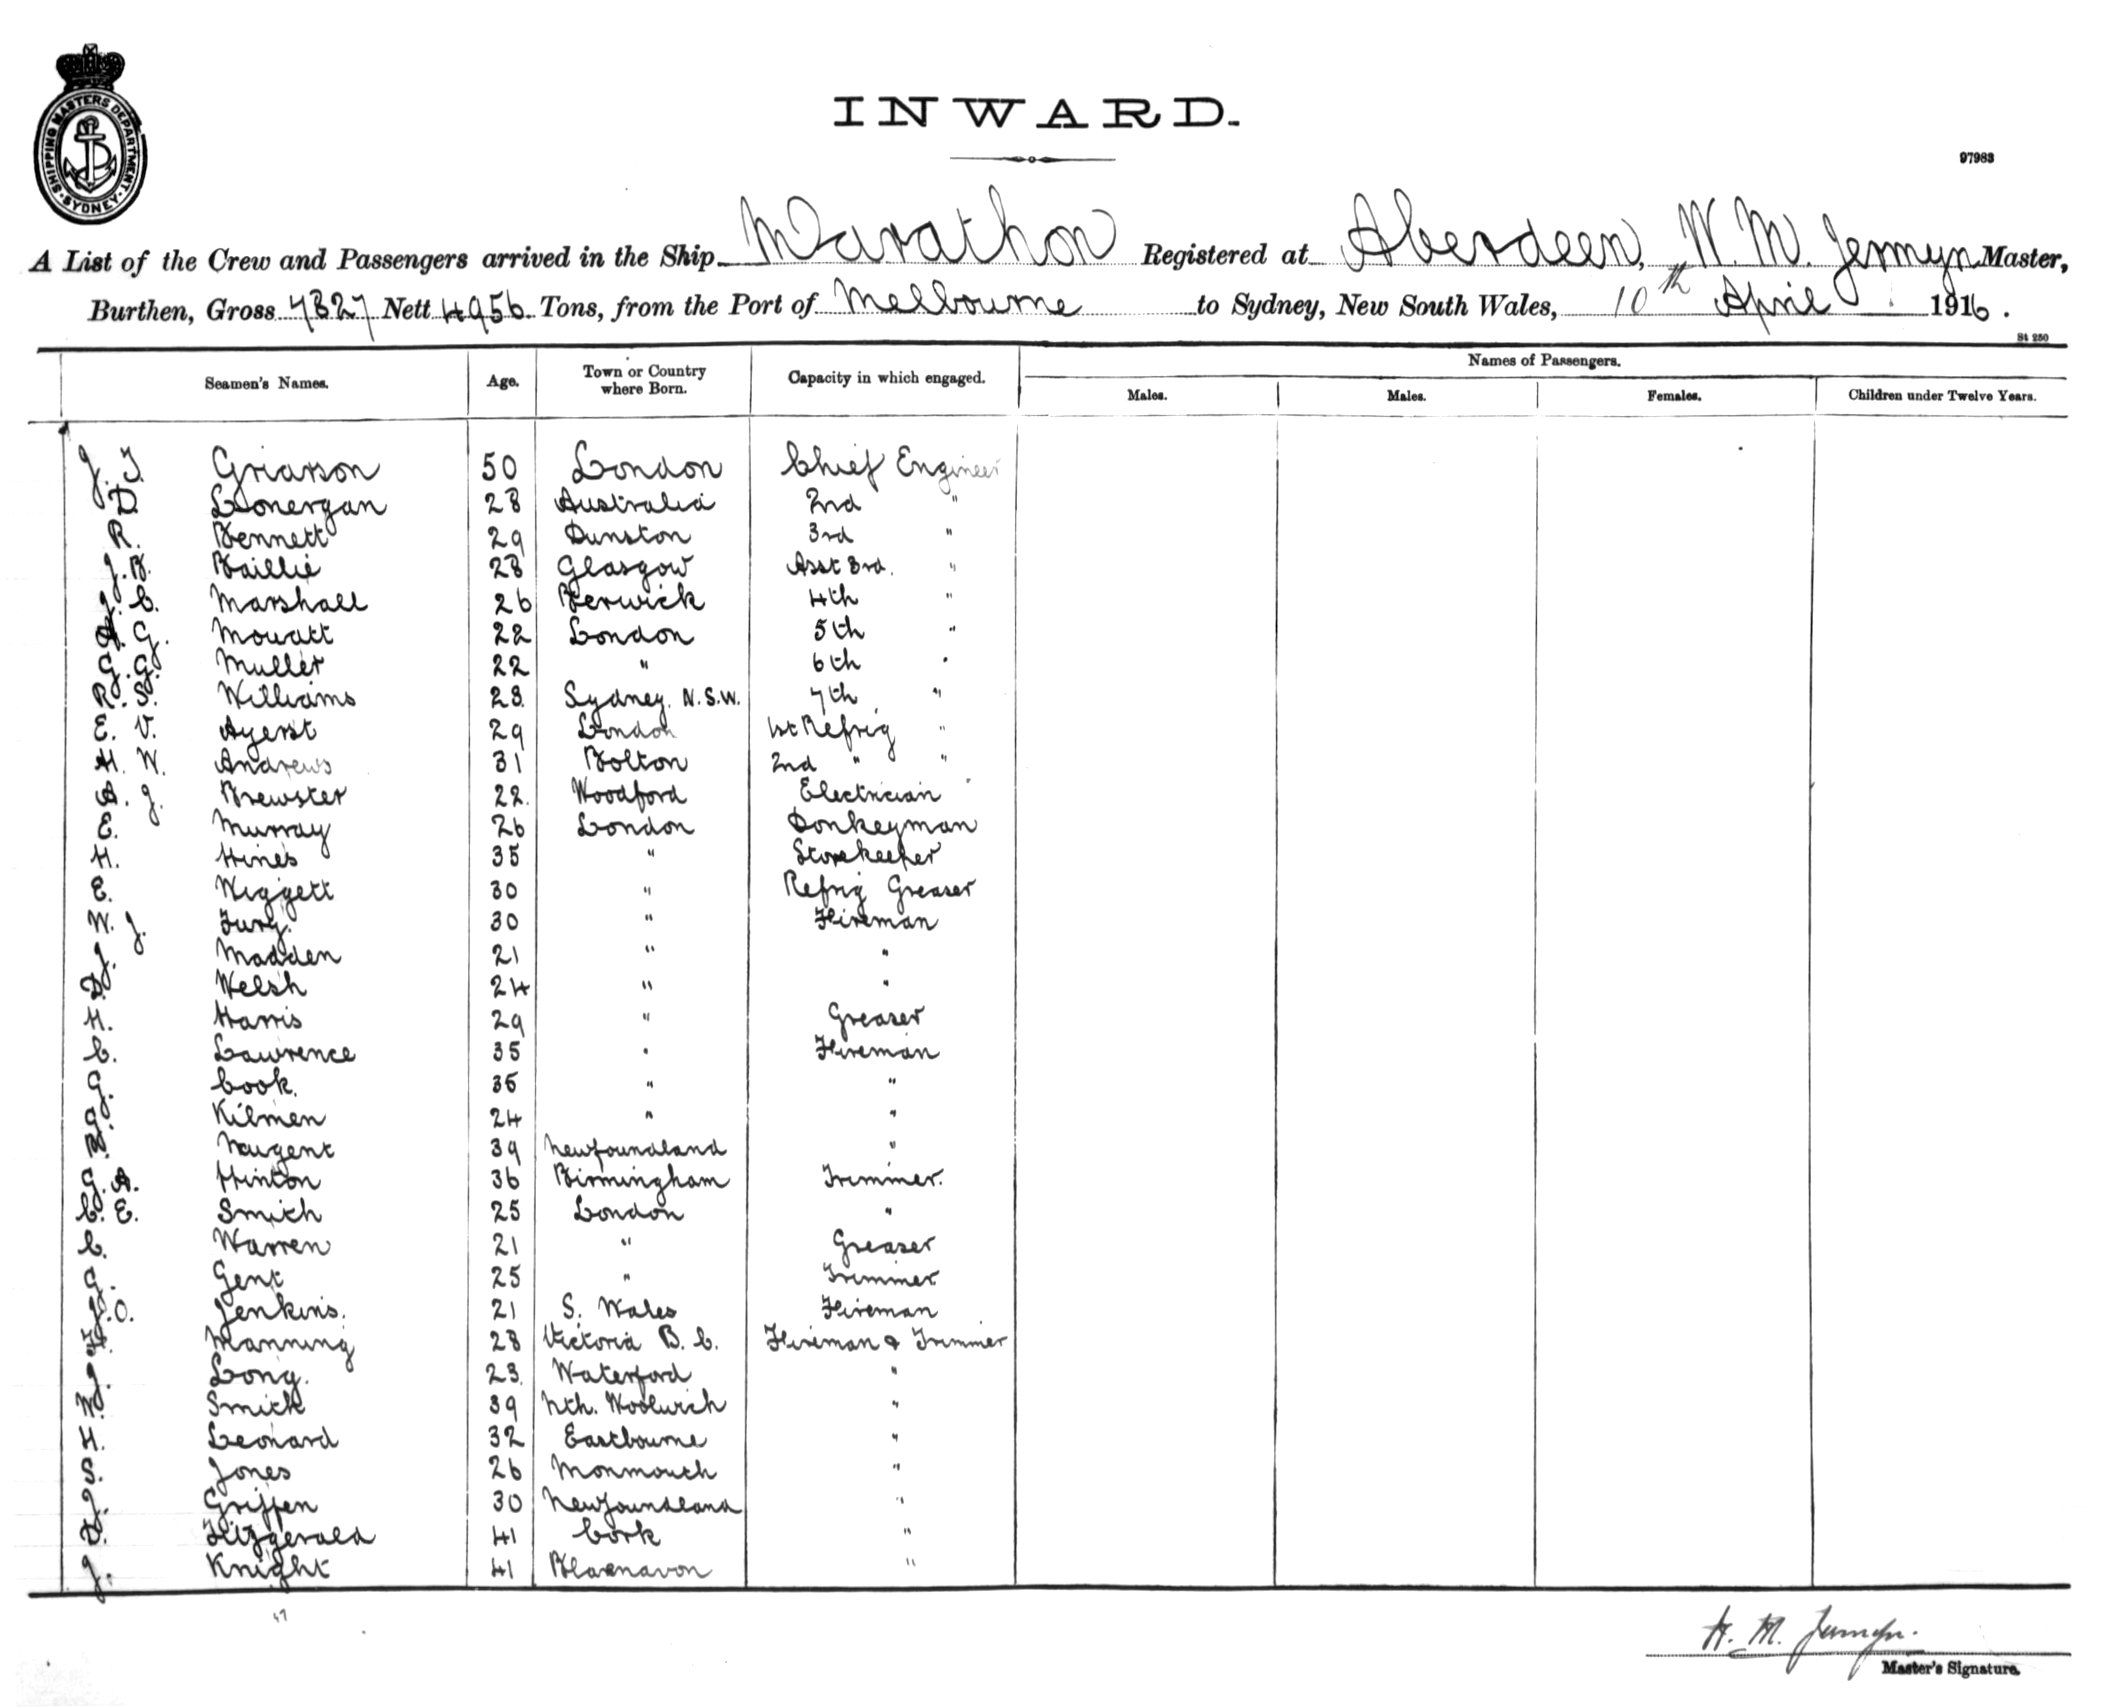 SHIPPING MASTERS DEPARTMENT
SYDNEY
INWARD.
97983
A List of the Crew and Passengers arrived in the Ship Marathon Registered at Aberdeen, W. M. Jermyn Master,
Burthen, Gross 7827 Nett 4956 Tons, from the Port of Melbourne to Sydney, New South Wales, 10th April 1916.
St 250
Seamen's Names. Age. Town or Country where Born. Capacity in which engaged. Names of Passengers.
Males. Males. Females. Children under Twelve Years.
J. T. Griarson 50 London Chief Engineer
D. Lonergan 28 Australia 2nd "
R. Bennett 29 Dunston 3rd "
J. B. Baillie 28 Glasgow Asst 3rd. "
J. C. Marshall 26 Berwick 4th "
A. G. Mouatt 22 London 5th "
G. G. Muller 22 " 6th "
R. S. Williams 28. Sydney. N.S.W. 7th "
E. V. Ayerst 29 London 1st Refrig "
H. W. Andrews 31 Bolton 2nd " "
A. J. Brewster 22. Woodford Electrician
E. Murray 26 London Donkeyman
H. Hines 35 " Storekeeper
E. Wiggett 30 " Refrig Greaser
W. J. Fury. 30 " Fireman
J. Madden 21 " "
D. Welsh 24 " "
H. Harris 29 " Greaser
C. Lawrence 35 " Fireman
G. Cook. 35 " "
G. Kilmen 24 " "
B. Nugent 39 Newfoundland "
G. A. Hinton 36 Birmingham Trimmer.
C. E. Smith 25 London "
C. Warren 21 " Greaser
G. Gent 25 " Trimmer
J. O. Jenkins. 21 S. Wales Fireman
F. Manning 28 Victoria B. C. Fireman & Trimmer
J. Long. 23. Waterford "
W. Smith 39 Nth. Woolwich "
H. Leonard 32 Eastbourne "
S. Jones 26 Monmouth "
J. Griffen 30 Newfoundland "
D. Fitzgerald 41 Cork "
J. Knight 41 Blaenavon "
W. M. Jermyn.
Master's Signature.